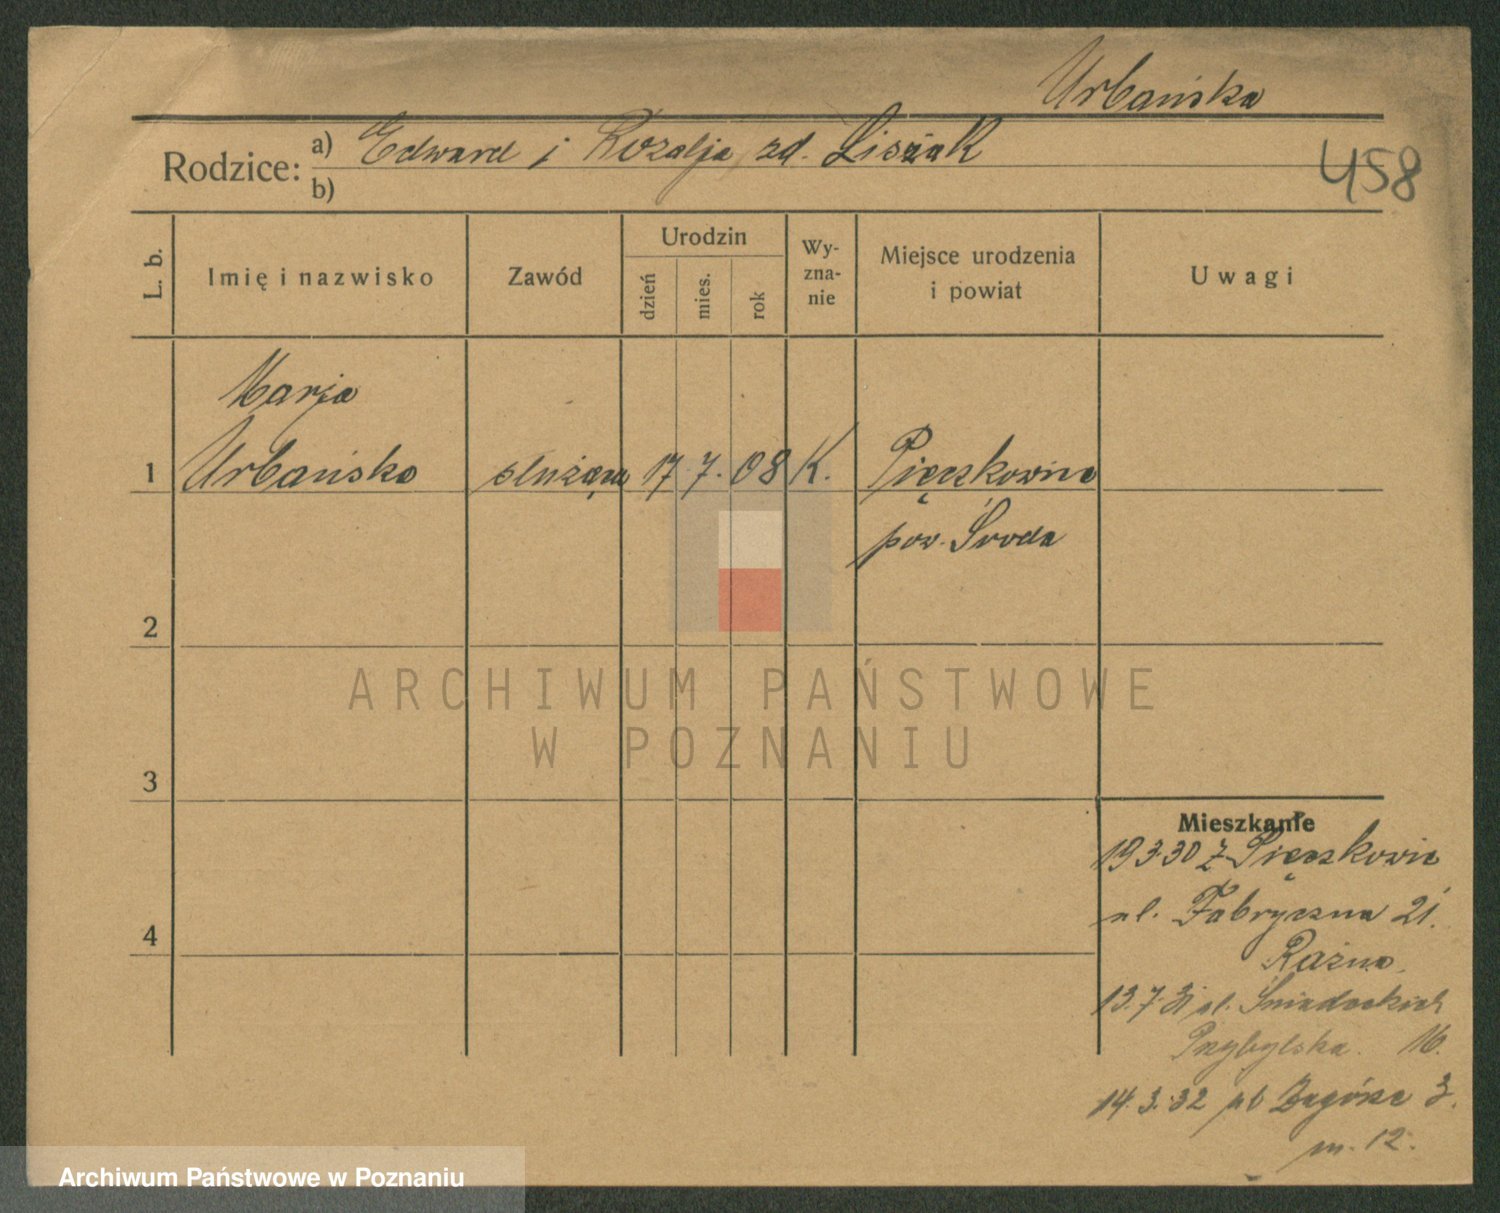 Urbańska
Rodzice: a) Edward i Rozalja zd. Lisiak
b)
458
L. b. Imię i nazwisko Zawód Urodzin dzień mies. rok Wyznanie Miejsce urodzenia i powiat Uwagi
Marja
1 Urbańska służąca 17 7. 08 K. Pięczkowice
pow. Środa
2
ARCHIWUM PAŃSTWOWE
W POZNANIU
3
Mieszkanie
19.3.30 z Pięczkowic
ul. Fabryczna 21.
4
13.7.31 ul. Śniadeckich
Przybylska. 16.
14.3.32 pl Zagórze 3.
m. 12.
Archiwum Państwowe w Poznaniu